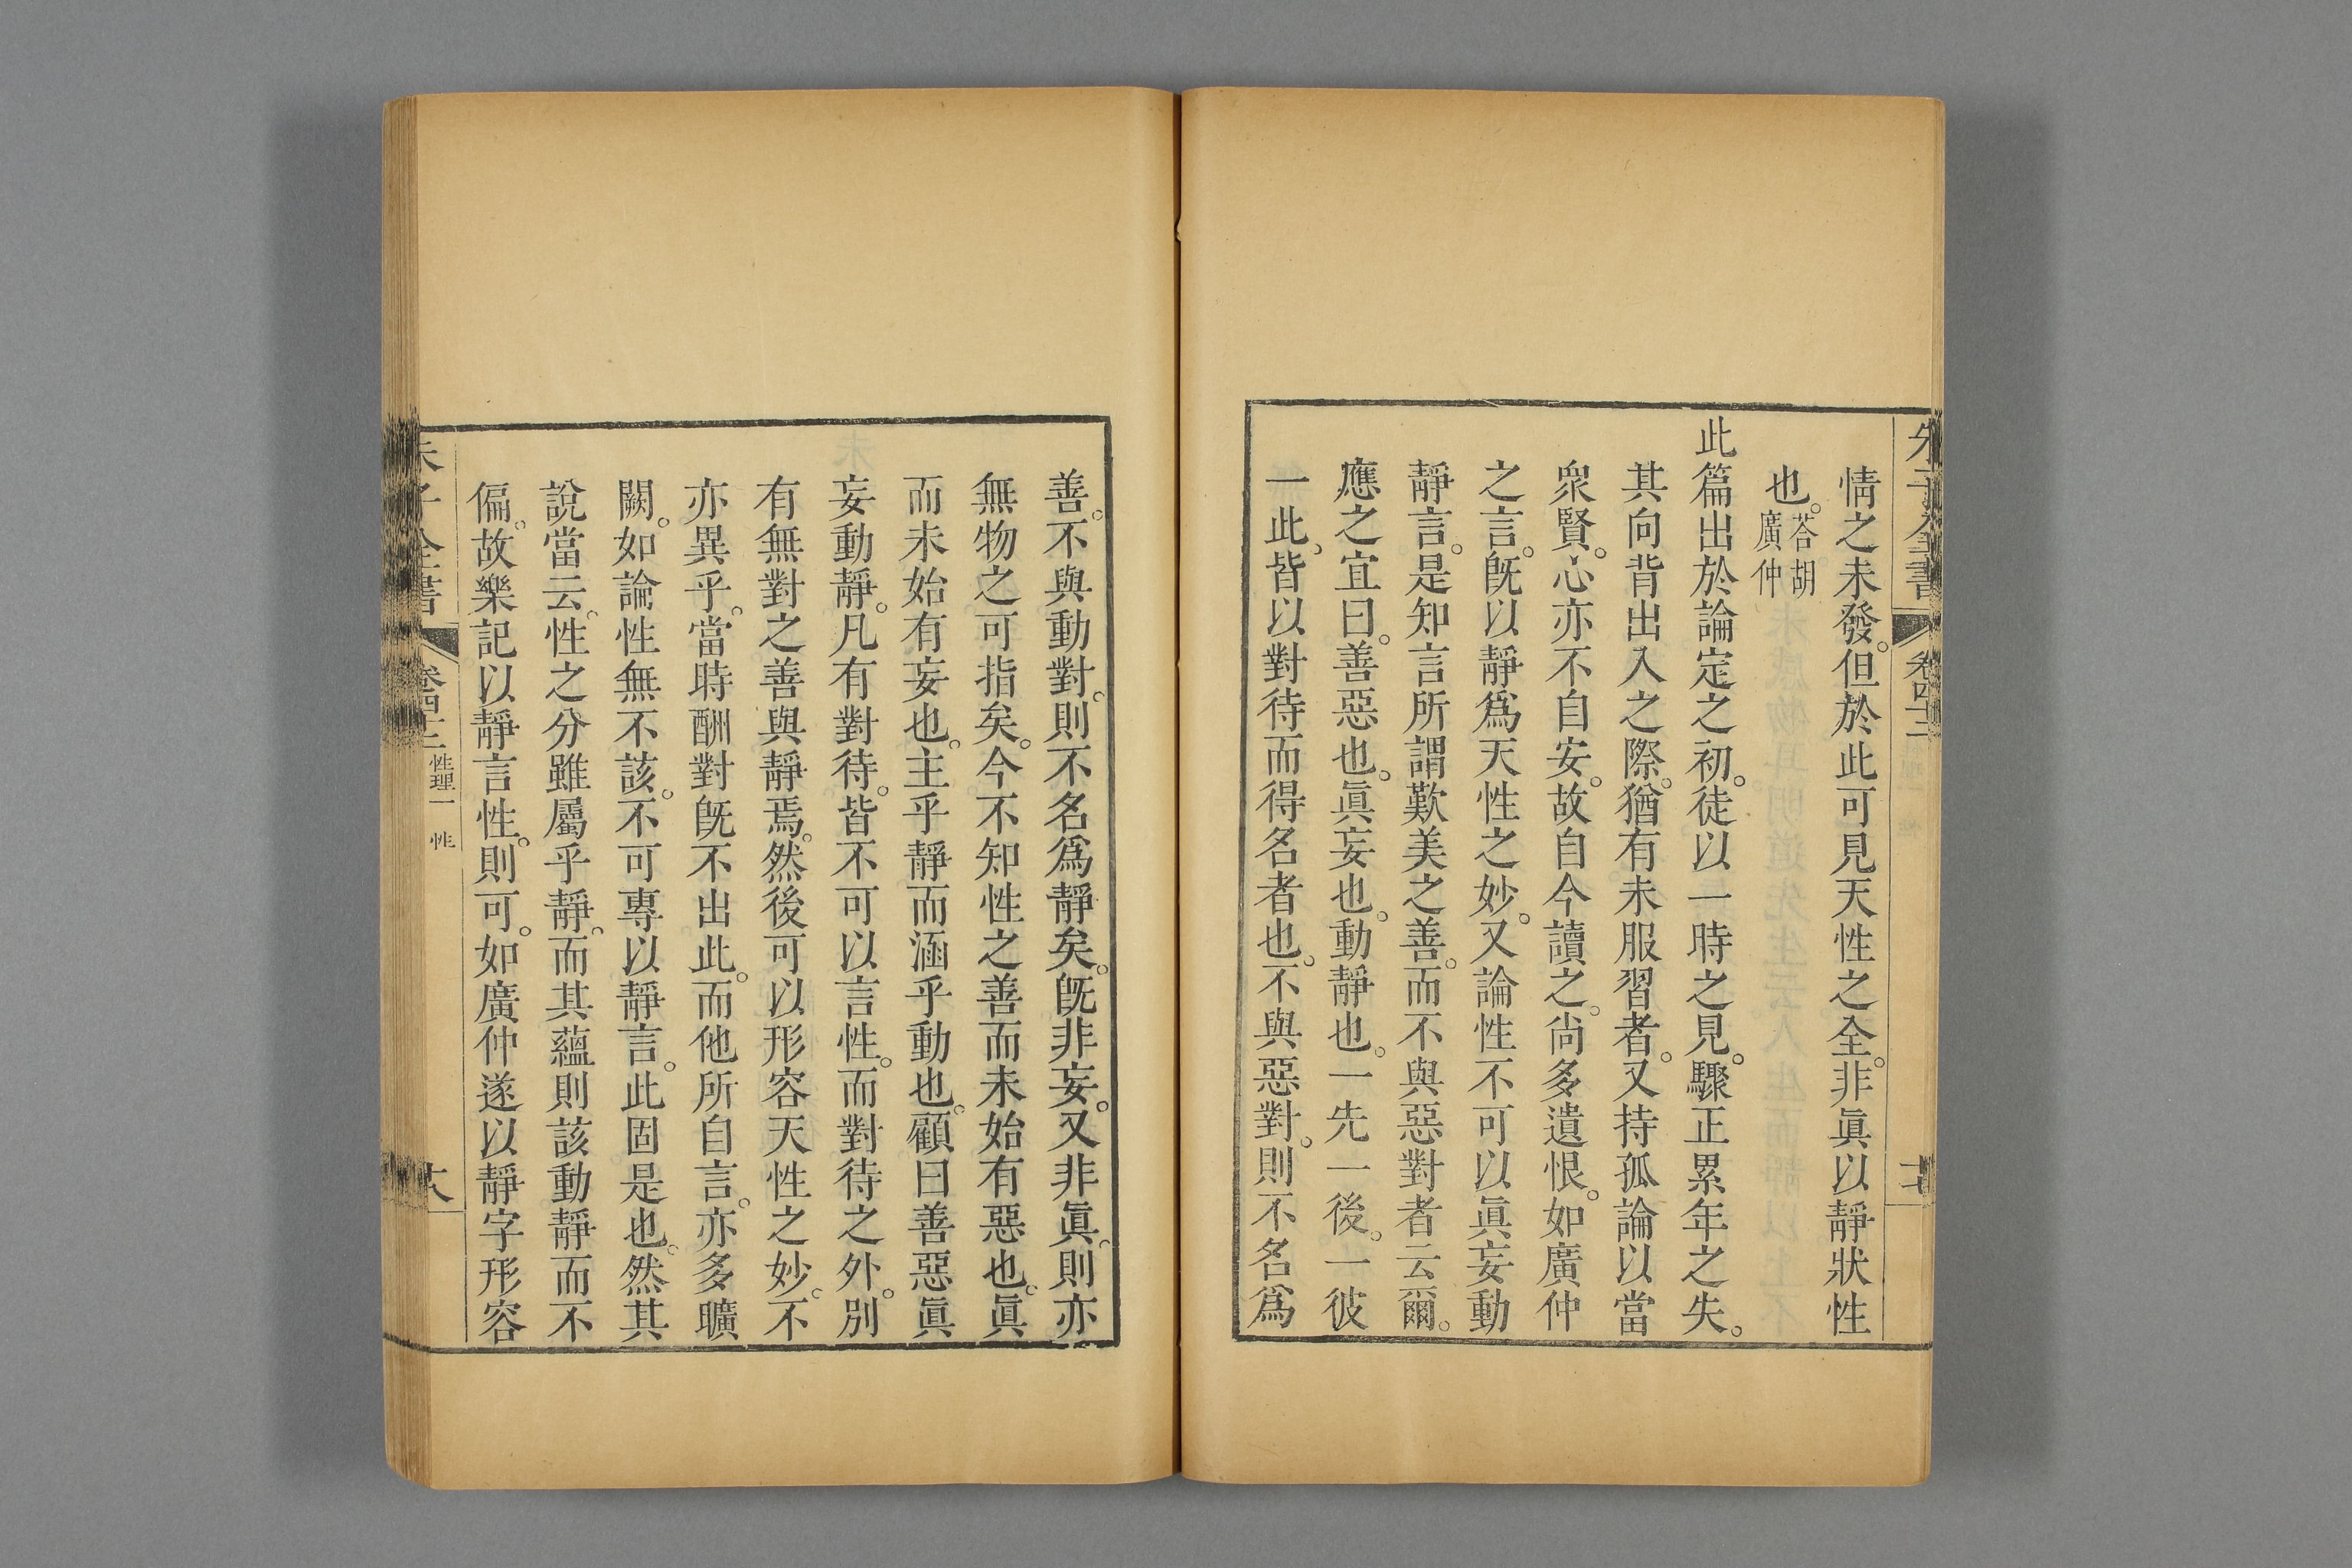 情之未發。但於此可見天性之全。非眞以靜狀性
也。荅胡廣仲
此篇出於論定之初。徒以一時之見。驟正累年之失。
其向背出入之際。猶有未服習者。又持孤論以當
衆賢。心亦不自安。故自今讀之。尚多遺恨。如廣仲
之言。旣以靜爲天性之妙。又論性不可以眞妄動
靜言。是知言所謂歎美之善。而不與惡對者云爾。
應之宜曰。善惡也。眞妄也。動靜也。一先一後。一彼
一此。皆以對待而得名者也。不與惡對。則不名爲
善。不與動對。則不名爲靜矣。旣非妄。又非眞。則亦
無物之可指矣。今不知性之善而未始有惡也。眞
而未始有妄也。主乎靜而涵乎動也。顧曰善惡眞
妄動靜。凡有對待。皆不可以言性。而對待之外。別
有無對之善與靜焉。然後可以形容天性之妙。不
亦異乎。當時酬對旣不出此。而他所自言。亦多曠
闕。如論性無不該。不可專以靜言。此固是也。然其
說當云。性之分雖屬乎靜。而其蘊則該動靜而不
偏。故樂記以靜言性。則可。如廣仲遂以靜字形容
朱子全書
卷四十二
性理一 性